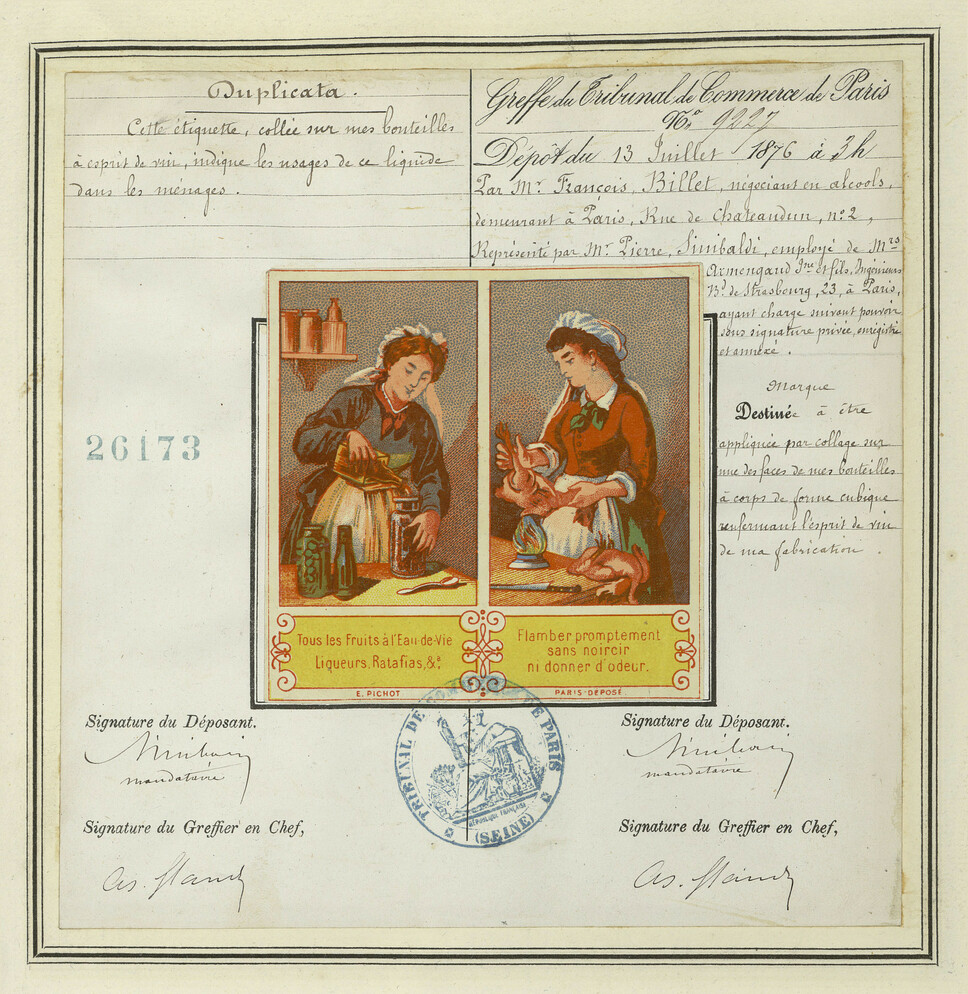 Duplicata.
Cette étiquette, collée sur mes bouteilles
à esprit de vin, indique les usages de ce liquide
dans les ménages.
Greffe du Tribunal de Commerce de Paris
No. 9227
Dépôt du 13 Juillet 1876 à 3h
Par Mr. François, Billet, négociant en alcools,
demeurant à Paris, Rue de Chateaudun, no. 2,
Représenté par Mr. Pierre, Sinibaldi, employé de Mrs
Armengaud Jne et fils, Ingénieurs
Bd. de Strasbourg, 23, à Paris,
ayant charge suivant pouvoir
sous signature privée, enrégistré
et annexé.
Marque
Destinée à être
appliquée par collage sur
une des faces de mes bouteilles
à corps de forme cubique
renfermant l'esprit de vin
de ma fabrication.
26173
Tous les Fruits à l'Eau-de-Vie
Liqueurs, Ratafias, &a.
Flamber promptement
sans noircir
ni donner d'odeur.
E. PICHOT
PARIS-DÉPOSÉ
TRIBUNAL DE COMMERCE DE PARIS
RÉPUBLIQUE FRANÇAISE
(SEINE)
Signature du Déposant.
mandataire
Signature du Greffier en Chef,
Signature du Déposant.
mandataire
Signature du Greffier en Chef,